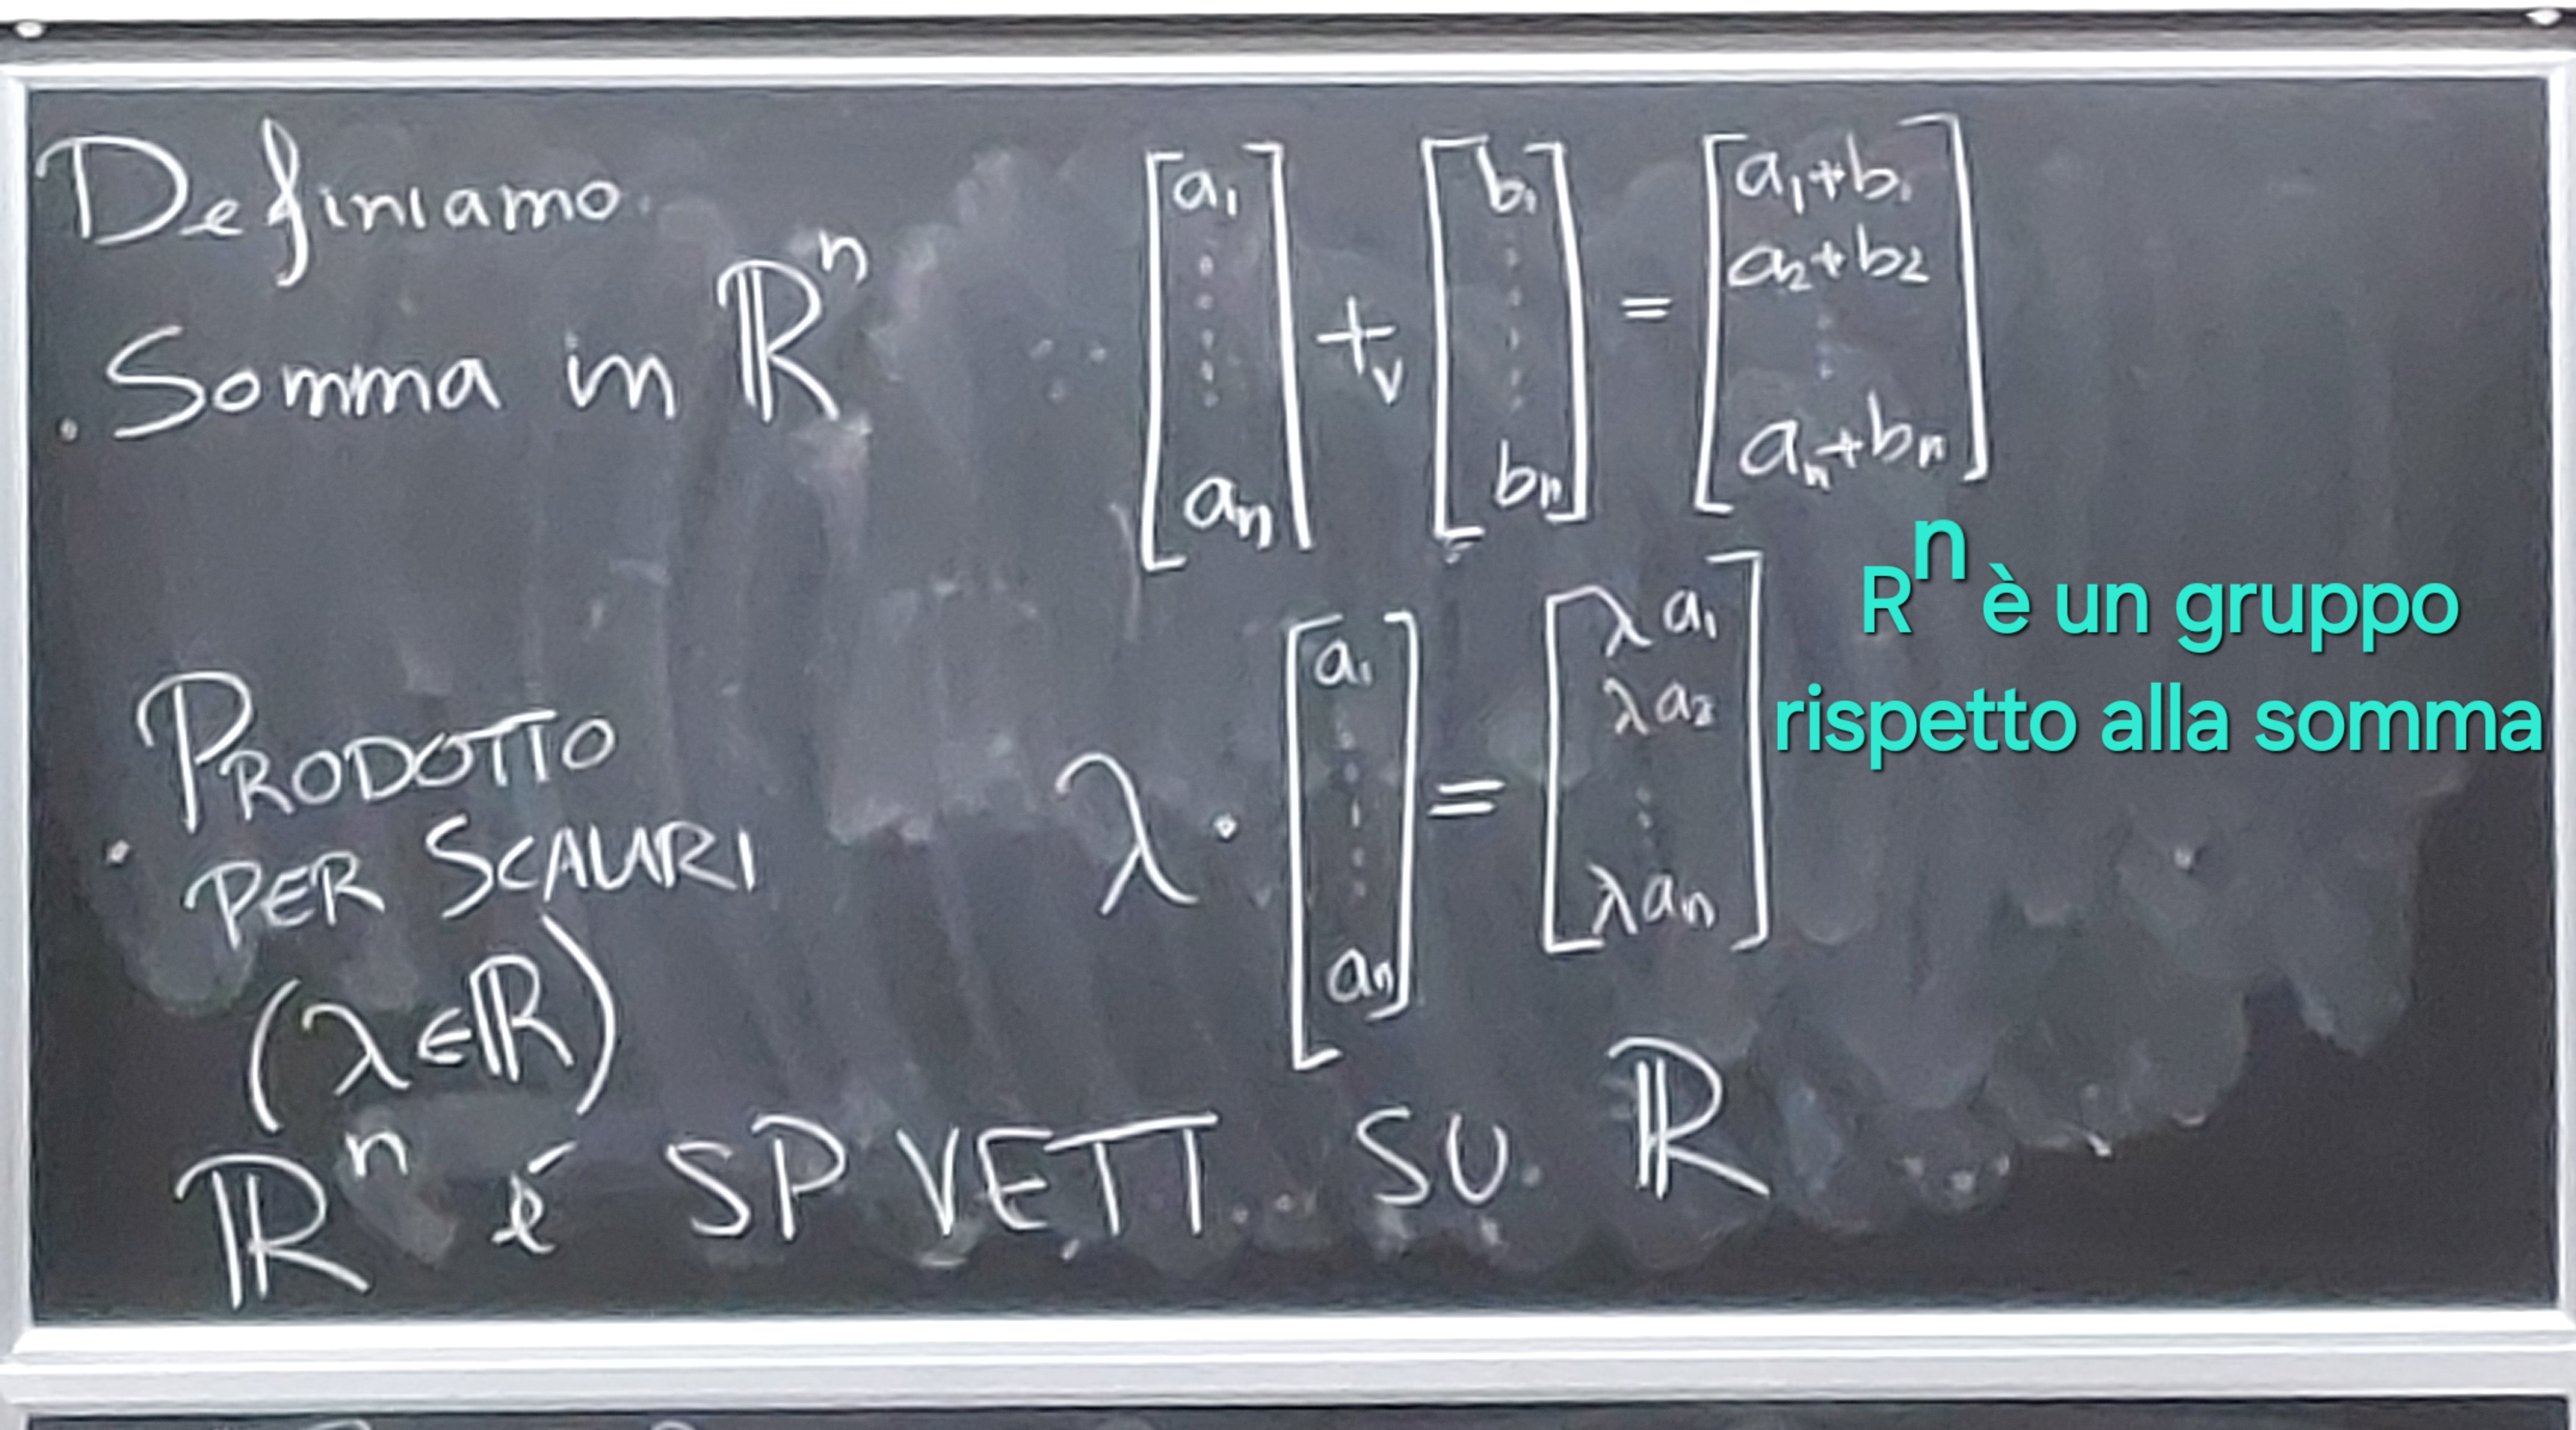 Definiamo
. Somma in ℝⁿ
[a₁ ⋮ aₙ] +ᵥ [b₁ ⋮ bₙ] = [a₁+b₁ a₂+b₂ ⋮ aₙ+bₙ]
Rⁿ è un gruppo
rispetto alla somma
. PRODOTTO
PER SCALARI
(λ∈ℝ)
λ · [a₁ ⋮ aₙ] = [λa₁ λa₂ ⋮ λaₙ]
ℝⁿ é SP VETT. SU ℝ